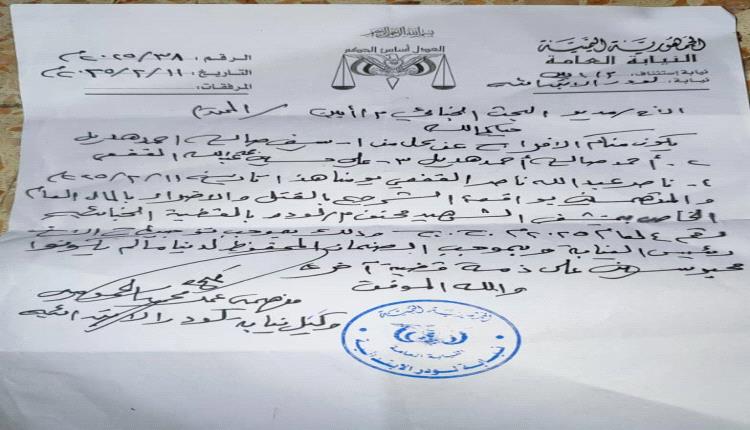 بسم الله الرحمن الرحيم
الجمهورية اليمنية
النيابة العامة
نيابة إستئناف: أبين
نيابة: لودر الابتدائية
العدل أساس الحكم
الرقم: ٢٠٢٥/٣٨م
التاريخ: ٢٠٢٥/٢/١١م
المرفقات:
الأخ / مدير البحث الجنائي م/ أبين المحترم
يكون منكم الافراج عن كل من ١- صالح احمد
٢- أحمد صالح أحمد ٣- علي القفعي
٤- ناصر عبدالله ناصر القفعي يومنا هذا تاريخ ٢٠٢٥/٢/١١م
والمتهمين بواقعة الشروع بالقتل والاضرار بالمال العام
الخاص بمستشفى الشهيد لودر بالقضية الجنائية
رقم ٤ لعام ٢٠٢٥م وذلك بموجب
رئيس النيابة وبموجب الضمان المحفوظ لدينا مالم يكونوا
محبوسين على ذمة قضية أخرى
والله الموفق
وكيل نيابة لودر الابتدائية
الجمهورية اليمنية
النيابة العامة
نيابة لودر الابتدائية